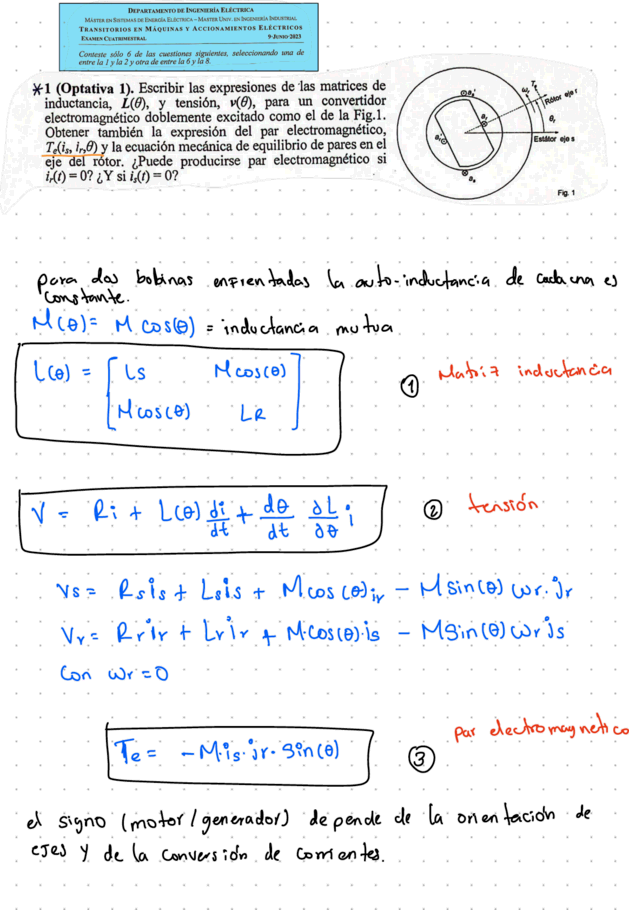 DEPARTAMENTO DE INGENIERÍA ELÉCTRICA
MÁSTER EN SISTEMAS DE ENERGÍA ELÉCTRICA – MASTER UNIV. EN INGENIERÍA INDUSTRIAL
TRANSITORIOS EN MÁQUINAS Y ACCIONAMIENTOS ELÉCTRICOS
EXAMEN CUATRIMESTRAL 9-JUNIO-2023
Conteste sólo 6 de las cuestiones siguientes, seleccionando una de
entre la 1 y la 2 y otra de entre la 6 y la 8.
*1 (Optativa 1). Escribir las expresiones de las matrices de
inductancia, L(θ), y tensión, v(θ), para un convertidor
electromagnético doblemente excitado como el de la Fig.1.
Obtener también la expresión del par electromagnético,
Te(is, ir,θ) y la ecuación mecánica de equilibrio de pares en el
eje del rotor. ¿Puede producirse par electromagnético si
ir(t) = 0? ¿Y si is(t) = 0?
as'
ωr
Te
Rótor eje r
ar
θr
ar'
Estátor eje s
as
Fig. 1
para dos bobinas enfrentadas la auto-inductancia de cada una es
constante.
M(θ)= M cos(θ) = inductancia mutua
L(θ) = [ Ls M cos(θ)
M cos(θ) LR ]
① Matriz inductancia
V = Ri + L(θ) di/dt + dθ/dt ∂L/∂θ i
② tensión
vs = Rs is + Ls is + M cos(θ) ir − M sin(θ) ωr . ir
Vr = Rr ir + Lr ir + M.cos(θ).is − M sin(θ) ωr is
Con ωr = 0
Te = −M.is.ir. sin(θ)
③ par electromagnetico
el signo (motor/generador) depende de la orientación de
ejes y de la conversión de corrientes.